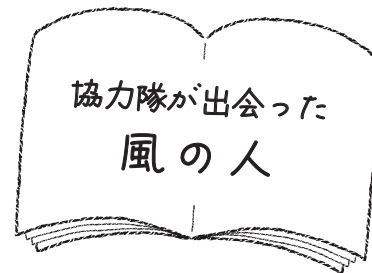 協力隊が出会った
風の人